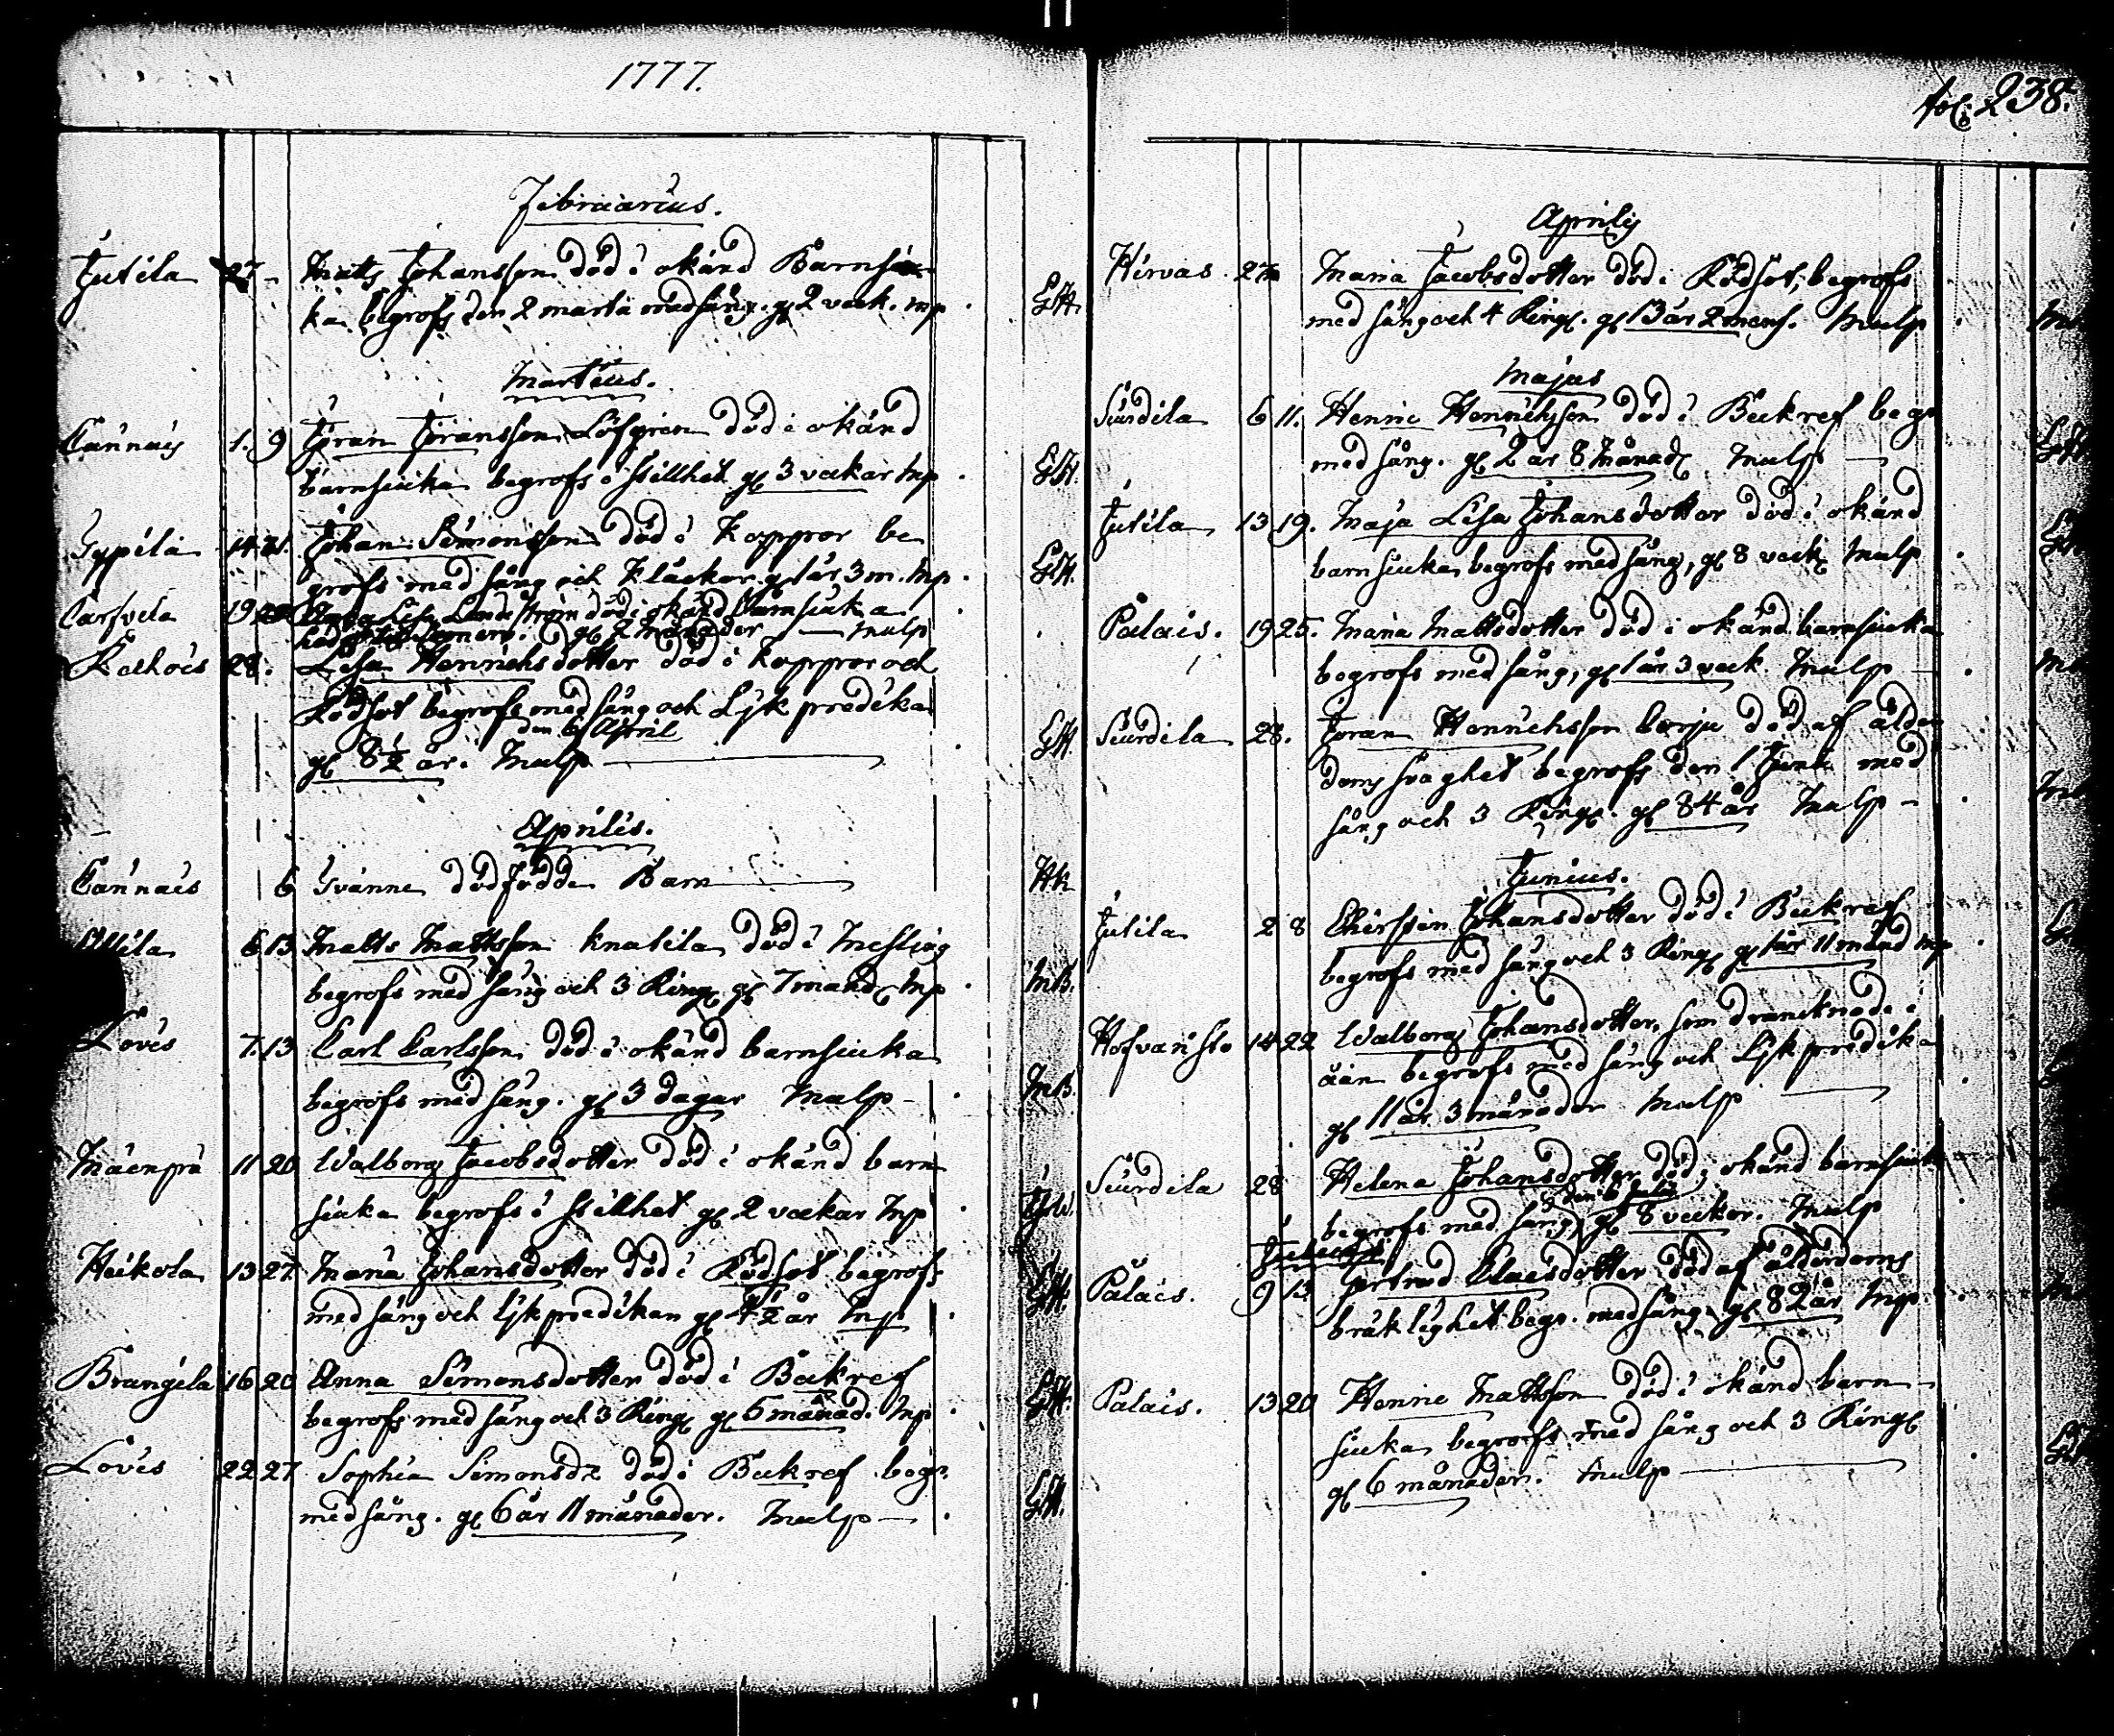 1777.
Februarius.
Jutila 27 Matts Johansson död i okänd Barnsiu
ka begrofs den 2 martii med sång. gl 2 veck. mp GH.
Martius.
Cannais 1. 9 Jöran Jöransson Löfgren död i okänd
barnsiuka begrofs i stillhet gl 3 veckar mp GH.
Sypilä 14 21. Johan Simonsson död i Koppor be
grofs med sång och Klåckor. gl 1 år 3 m. mp. GH.
Carfvela 19 Lisa död i okänd barnsiuka
gl 2 månader — Malp
Kalhois 28. Lisa Henrichsdotter död i koppor och
Rödsot begrofs med sång och Lijkpredika
den 6 April
gl 8½ år. Malp GH.
Aprilis.
Cannais 6 dödfödde Barn Hk
Attila 6 13 Matts Mattsson Knatila död i Messling
begrofs med sång och 3 Ring. gl 7 månd. mp MB.
Lovis 7. 13 Carl Carlsson död i okänd barnsiuka
begrofs med sång. gl 3 dagar Malp MB.
Mäenpä 11 20 Walborg Jacobsdotter död i okänd barn
siuka begrofs i stillhet gl 2 veckar mp
Heikola 13 27. Maria Johansdotter död i Rödsot begrofs
med sång och lijkpredikan gl 4½ år mp GH.
Brangila 16 20 Anna Simonsdotter död i Bukref
begrofs med sång och 3 Ring. gl 5 månad. mp GH.
Lovis 22 27 Sophia Simonsdr död i Bukref begr.
med sång. gl 6 år 11 månader. Malp — GH.
fol. 238.
Aprilis
Hirvas 27 Maria Jacobsdotter död i Rödsot, begrofs
med sång och 4 Ring. gl 13 år 2 mens. Malp
Majus
Siurdila 6 11. Henric Henrichsson död i Bukref begr
med sång. gl 2 år 8 månad. Malp —
Jutila 13 19. Maja Lisa Johansdotter död i okänd
barnsiuka begrofs med sång, gl 8 veck. Malp
Palais. 19 25. Maria Mattsdotter död i okänd barnsiuka
begrofs med sång, gl 1 år 3 veck. Malp
Siurdila 28. Jöran Henrichsson död af ålder
doms svaghet begrofs den 1 Junii med
sång och 3 Ring. gl 84 år Malp —
Junius.
Jutila 2 8 Chirstin Johansdotter död i Bukref
begrofs med sång och 3 Ring. gl 1 år 11 månd mp
Hofvansto 14 22 Walborg Johansdotter, som drunknade i
åan begrofs med sång och Lijkpredika
gl 11 år 3 månader Malp
Siurdila 28 Helena Johansdotter död i okänd barnsiuka
den 6 Julii
begrofs med sång, gl 8 veckor. Malp
Julius
Palais. 9 13 Gertrud Claesdotter död af ålderdoms
bräklighet begr. med sång. gl 82 år mp.
Palais. 13 20 Henric Mattsson död i okänd barn
siuka begrofs med sång och 3 Ring.
gl 6 månader. Malp